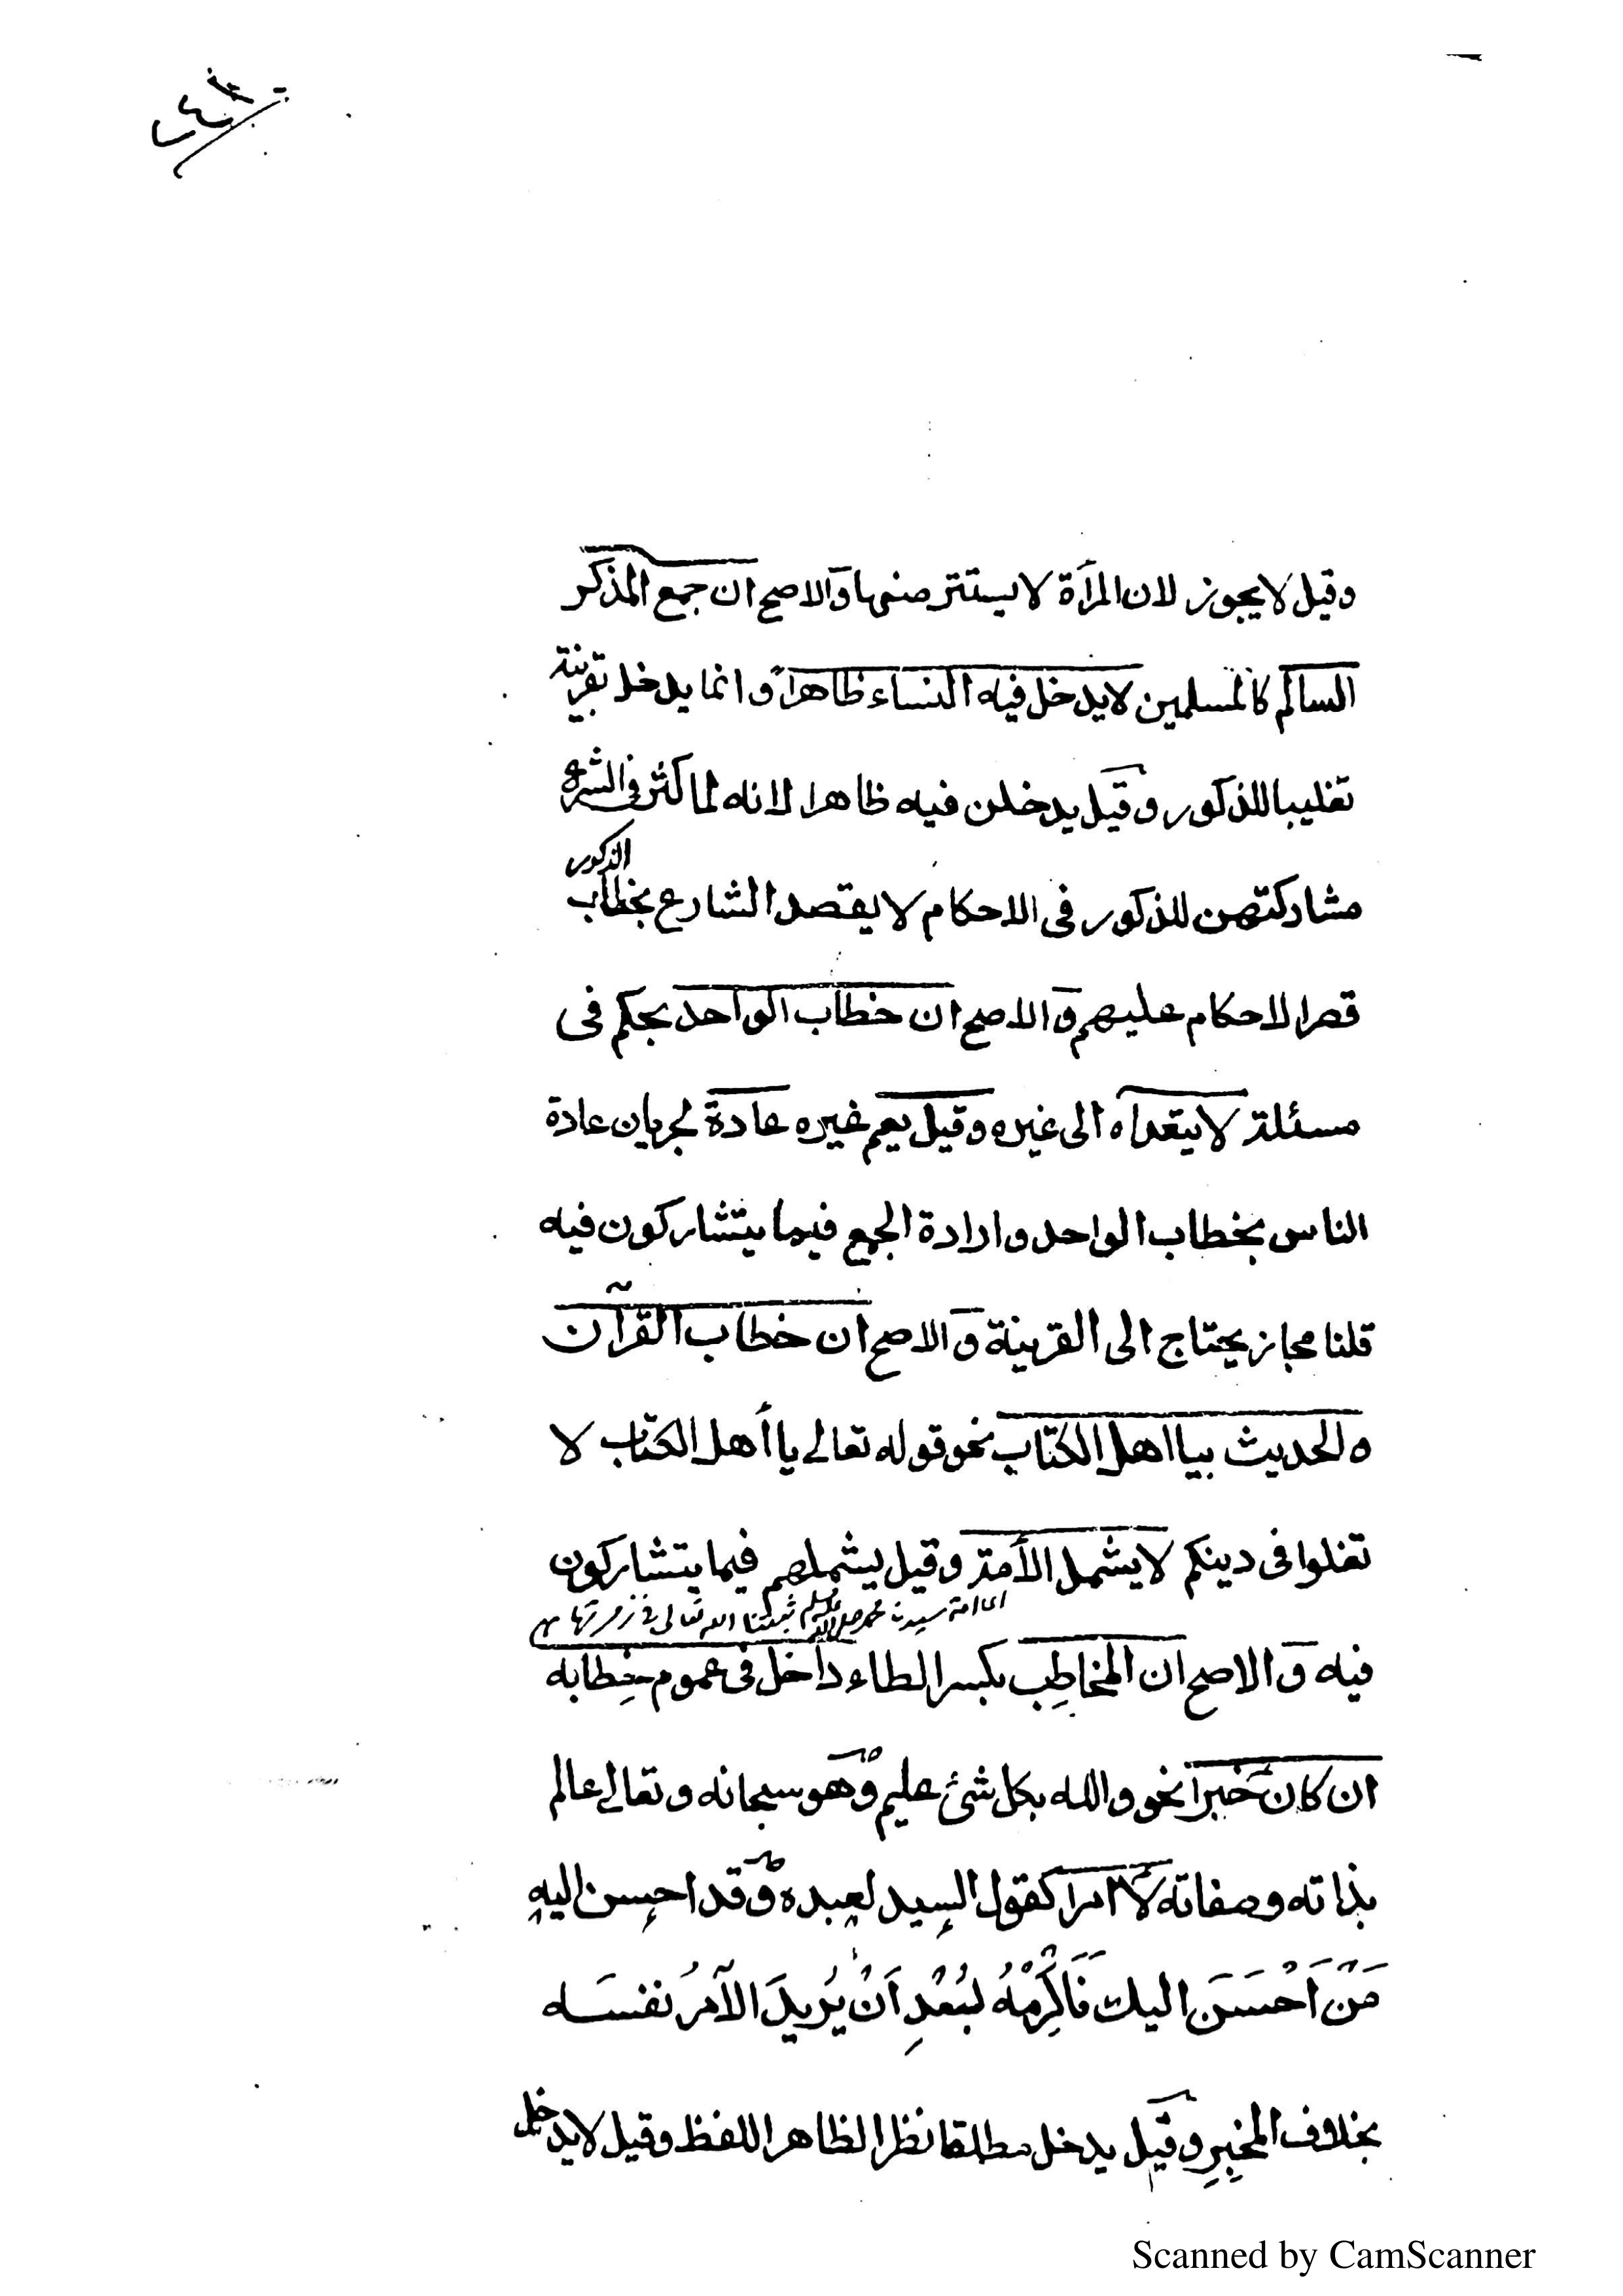 وقيل لا يجوز لان المرأة لا يستتر منها والاصح ان جمع المذكر
السالم كالمسلمين لا يدخل فيه النساء ظاهرا وانما يدخل بقرينة
تغليبا للذكور وقيل يدخلن فيه ظاهرا لانه لما كثر في الشرع
مشاركتهن للذكور فى الاحكام لا يقصد الشارع بخطاب الذكور
قصر الاحكام عليهم والاصح ان خطاب الواحد بحكم فى
مسئلة لا يتعداه الى غيره وقيل يعم غيره عادة لجريان عادة
الناس بخطاب الواحد وارادة الجمع فيما يتشاركون فيه
قلنا مجاز يحتاج الى القرينة والاصح ان خطاب القرآن
والحديث بيا اهل الكتاب نحو قوله تعالى يا أهل الكتاب لا
تغلوا فى دينكم لا يشمل الأمة وقيل يشملهم فيما يتشاركون
امة سيدنا محمد صلى الله عليه وسلم ثبتنا الله تعالى في زمرتها
فيه والاصح ان المخاطِب بكسر الطاء داخل فى عموم خِطابه
ان كان خبرًا نحو والله بكل شئ عليم وهو سبحانه وتعالى عالم
بذاته وصفاته لا امرا كقول السيد لعبده وقد احسن اليه
مَنْ اَحْسَنَ اليك فَاَكْرِمْهُ لبُعْدِ اَنْ يُرِيدَ الآمرُ نفسَه
بخلاف المخبِرِ وقيل يدخل مطلقا نظرا لظاهر اللفظ وقيل لا يدخل
Scanned by CamScanner